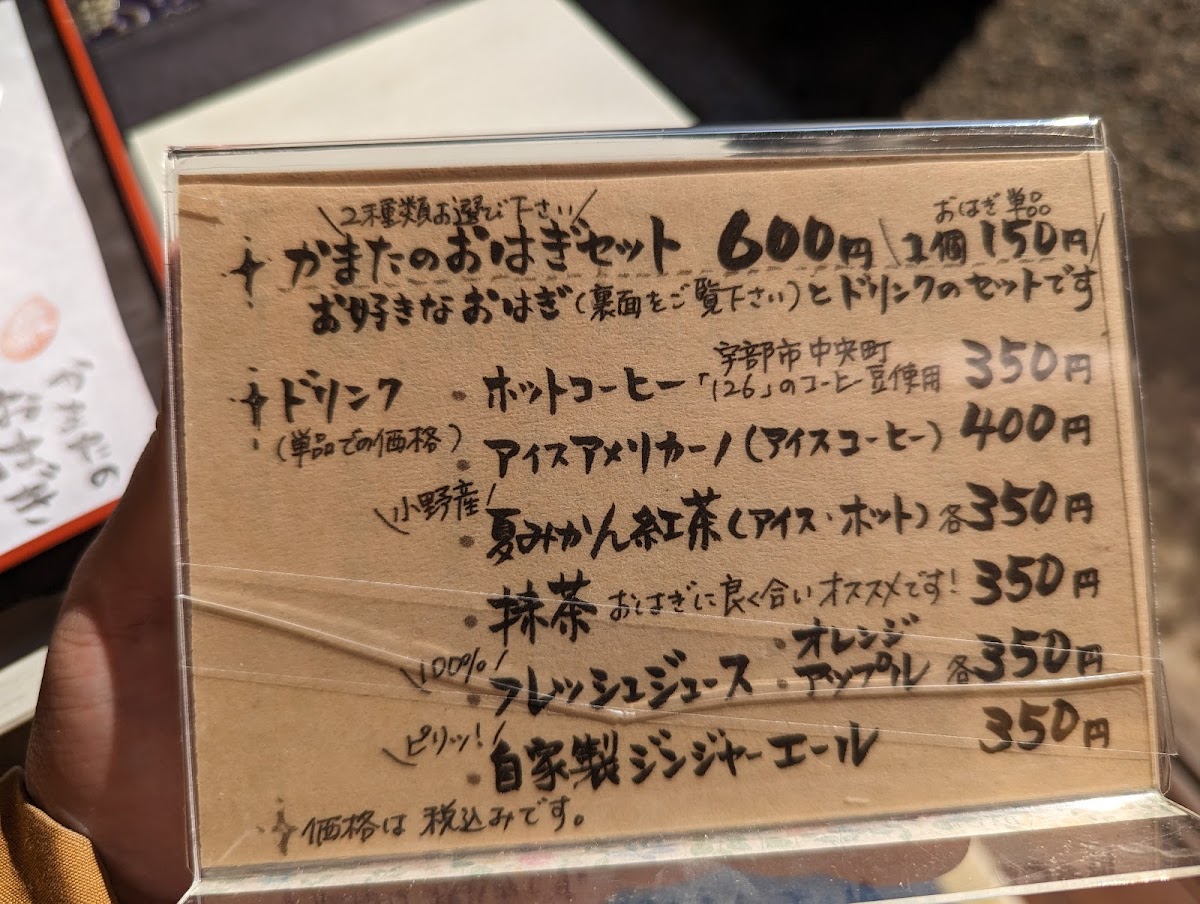 \2種類お選び下さい/
かまたのおはぎセット 600円
おはぎ単品
\1個 150円/
お好きなおはぎ(裏面をご覧下さい)とドリンクのセットです
ドリンク
(単品での価格)
・ホットコーヒー 宇部市中央町
「126」のコーヒー豆使用 350円
・アイスアメリカーノ(アイスコーヒー) 400円
\小野産/
・夏みかん紅茶(アイス・ホット) 各350円
・抹茶 おはぎに良く合いオススメです! 350円
\100%/
・フレッシュジュース ・オレンジ
・アップル 各350円
\ピリッ!/
・自家製ジンジャーエール 350円
価格は税込みです。